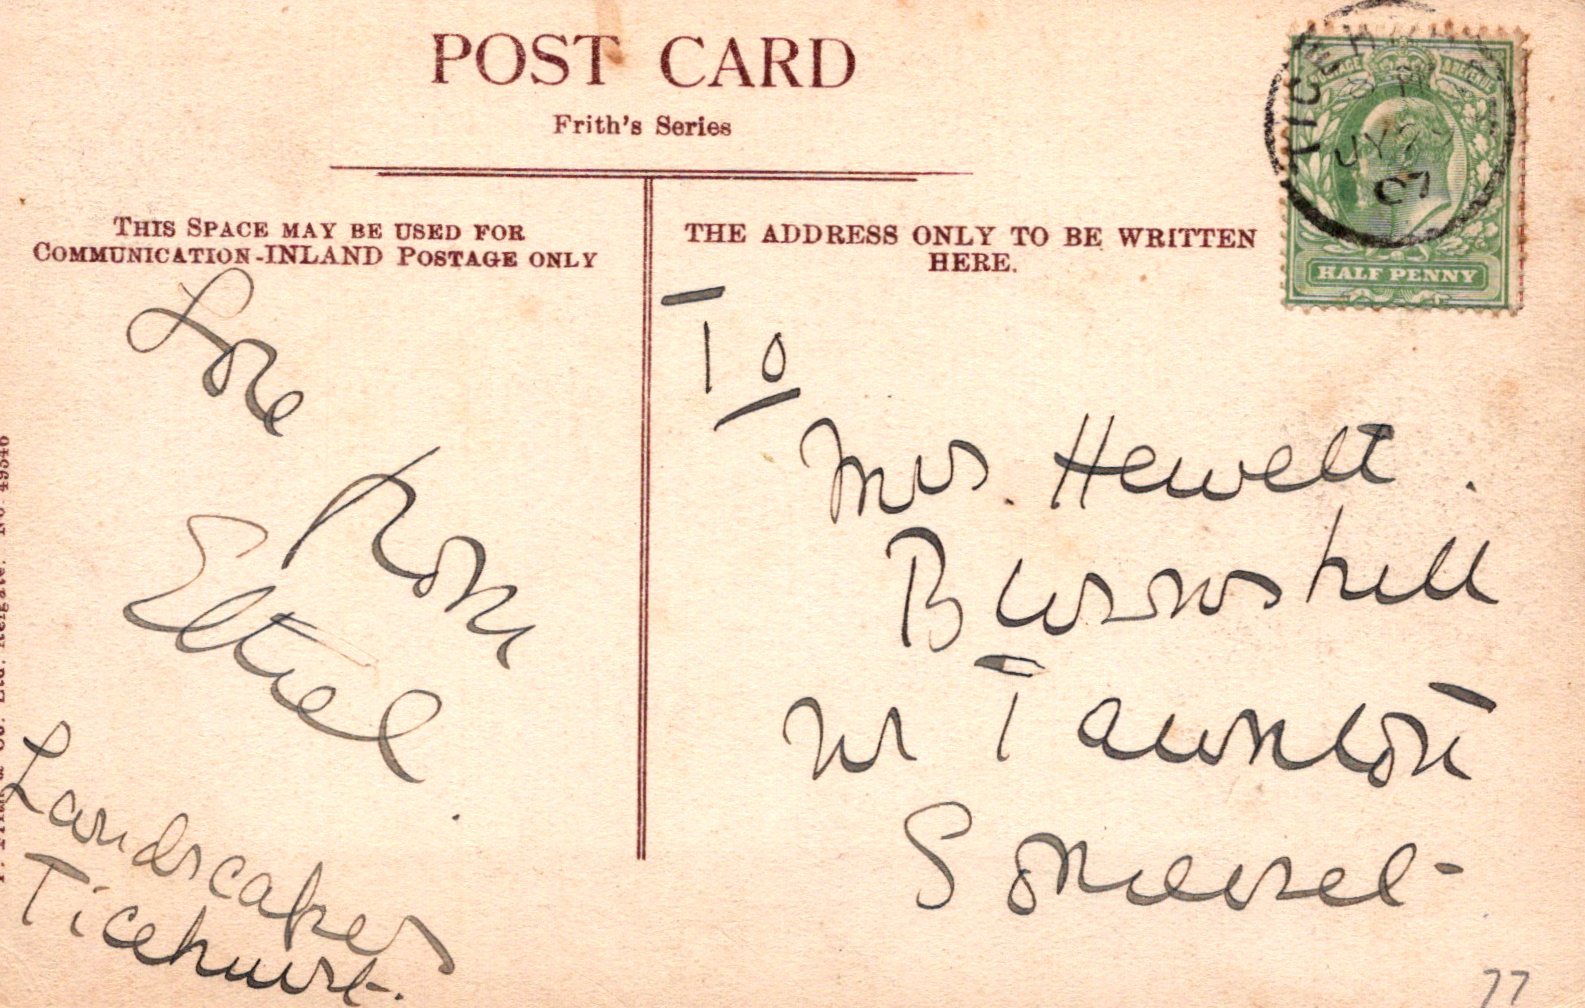 POST CARD
Frith's Series
THIS SPACE MAY BE USED FOR
COMMUNICATION-INLAND POSTAGE ONLY
THE ADDRESS ONLY TO BE WRITTEN
HERE.
HALF PENNY
JY 29
07
Love
from
Ethel.
Landscapes
Ticehurst.
To
Mrs. Hewett.
Burnshill
Nr Taunton
Somerset-
Ltd. Reigate. No 49346
77